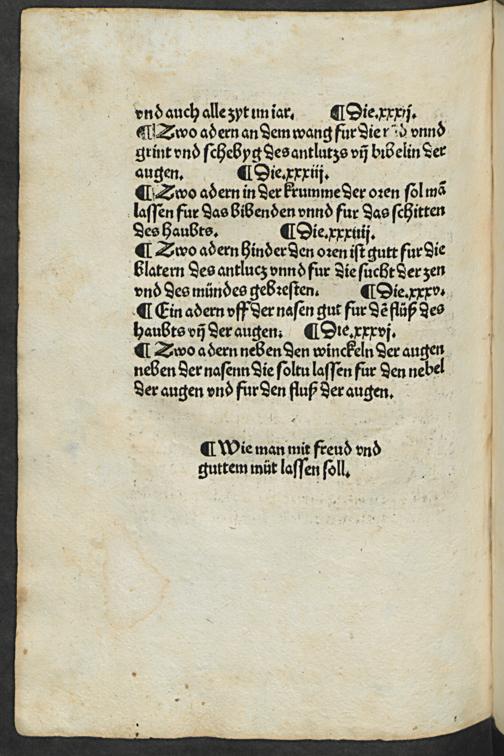 vnd auch alle zyt im iar. ¶ Die.xxxij.
¶ Zwo adern an dem wang fur die vnnd
grint vnd schebyg des antlutzs vñ bibelin der
augen. ¶ Die.xxxiij.
¶ Zwo adern in der krumme der oren sol mã
lassen fur das bibenden vnnd fur das schitten
des haubts. ¶ Die.xxxiiij.
¶ Zwo adern hinder den oren ist gutt fur die
blatern des antlucz vnnd fur die sucht der zen
vnd des mündes gebresten. ¶ Die.xxxv.
¶ Ein adern vff der nasen gut fur dẽ flüß des
haubts vñ der augen. ¶ Die.xxxvj.
¶ Zwo adern neben den winckeln der augen
neben der nasenn die soltu lassen fur den nebel
der augen vnd fur den fluß der augen.
¶ Wie man mit freud vnd
guttem müt lassen soll.